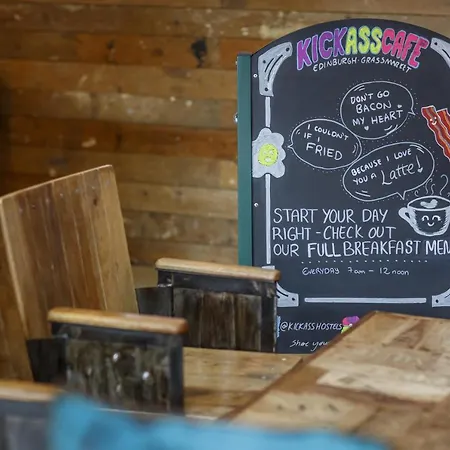 KICKASSCAFE
EDINBURGH·GRASSMARKET
DON'T GO
BACON
MY HEART
I COULDN'T
IF I
FRIED
BECAUSE I LOVE
YOU A Latte!
START YOUR DAY
RIGHT - CHECK OUT
OUR FULL BREAKFAST MENU
EVERYDAY 7am - 12noon
@KICKASSHOSTELS